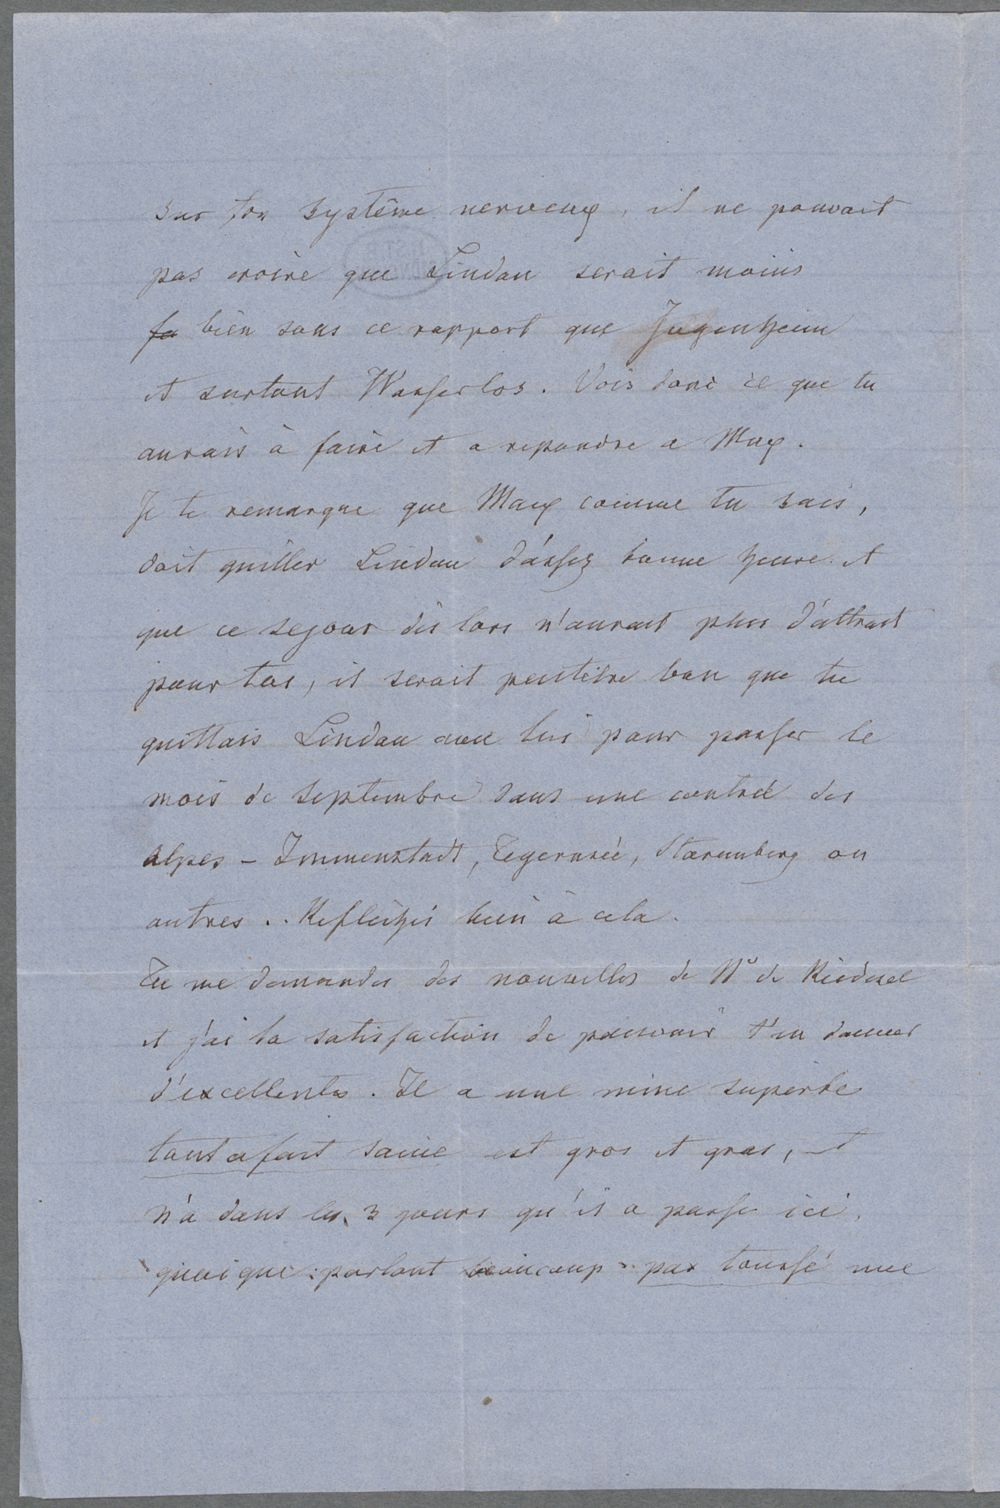 sur ton système nerveux, il ne pouvait
pas croire que Lindau serait moins
bien sous ce rapport que Jugenheim
et surtout Wasserlos. Vois donc ce que tu
aurais à faire et a repondre a Max.
Je te remarque que Max comme tu sais,
doit quitter Lindau d'assez bonne heure et
que ce sejour dès lors n'aurait plus d'attrait
pour toi, il serait peutêtre bon que tu
quittais Lindau avec lui pour passer le
mois de Septembre dans une contrée des
Alpes – Immenstadt, Tegernsée, Starenberg ou
autres.. Refléchis bien à cela.
Tu me demandes des nouvelles de Mr de Riedesel
et j'ai la satisfaction de pouvoir t'en donner
d'excellentes. Il a une mine superbe
tout a fait saine est gros et gras, et
n'a dans les 3 jours qu'il a passé ici,
quoique :parlant beaucoup: pas toussé une